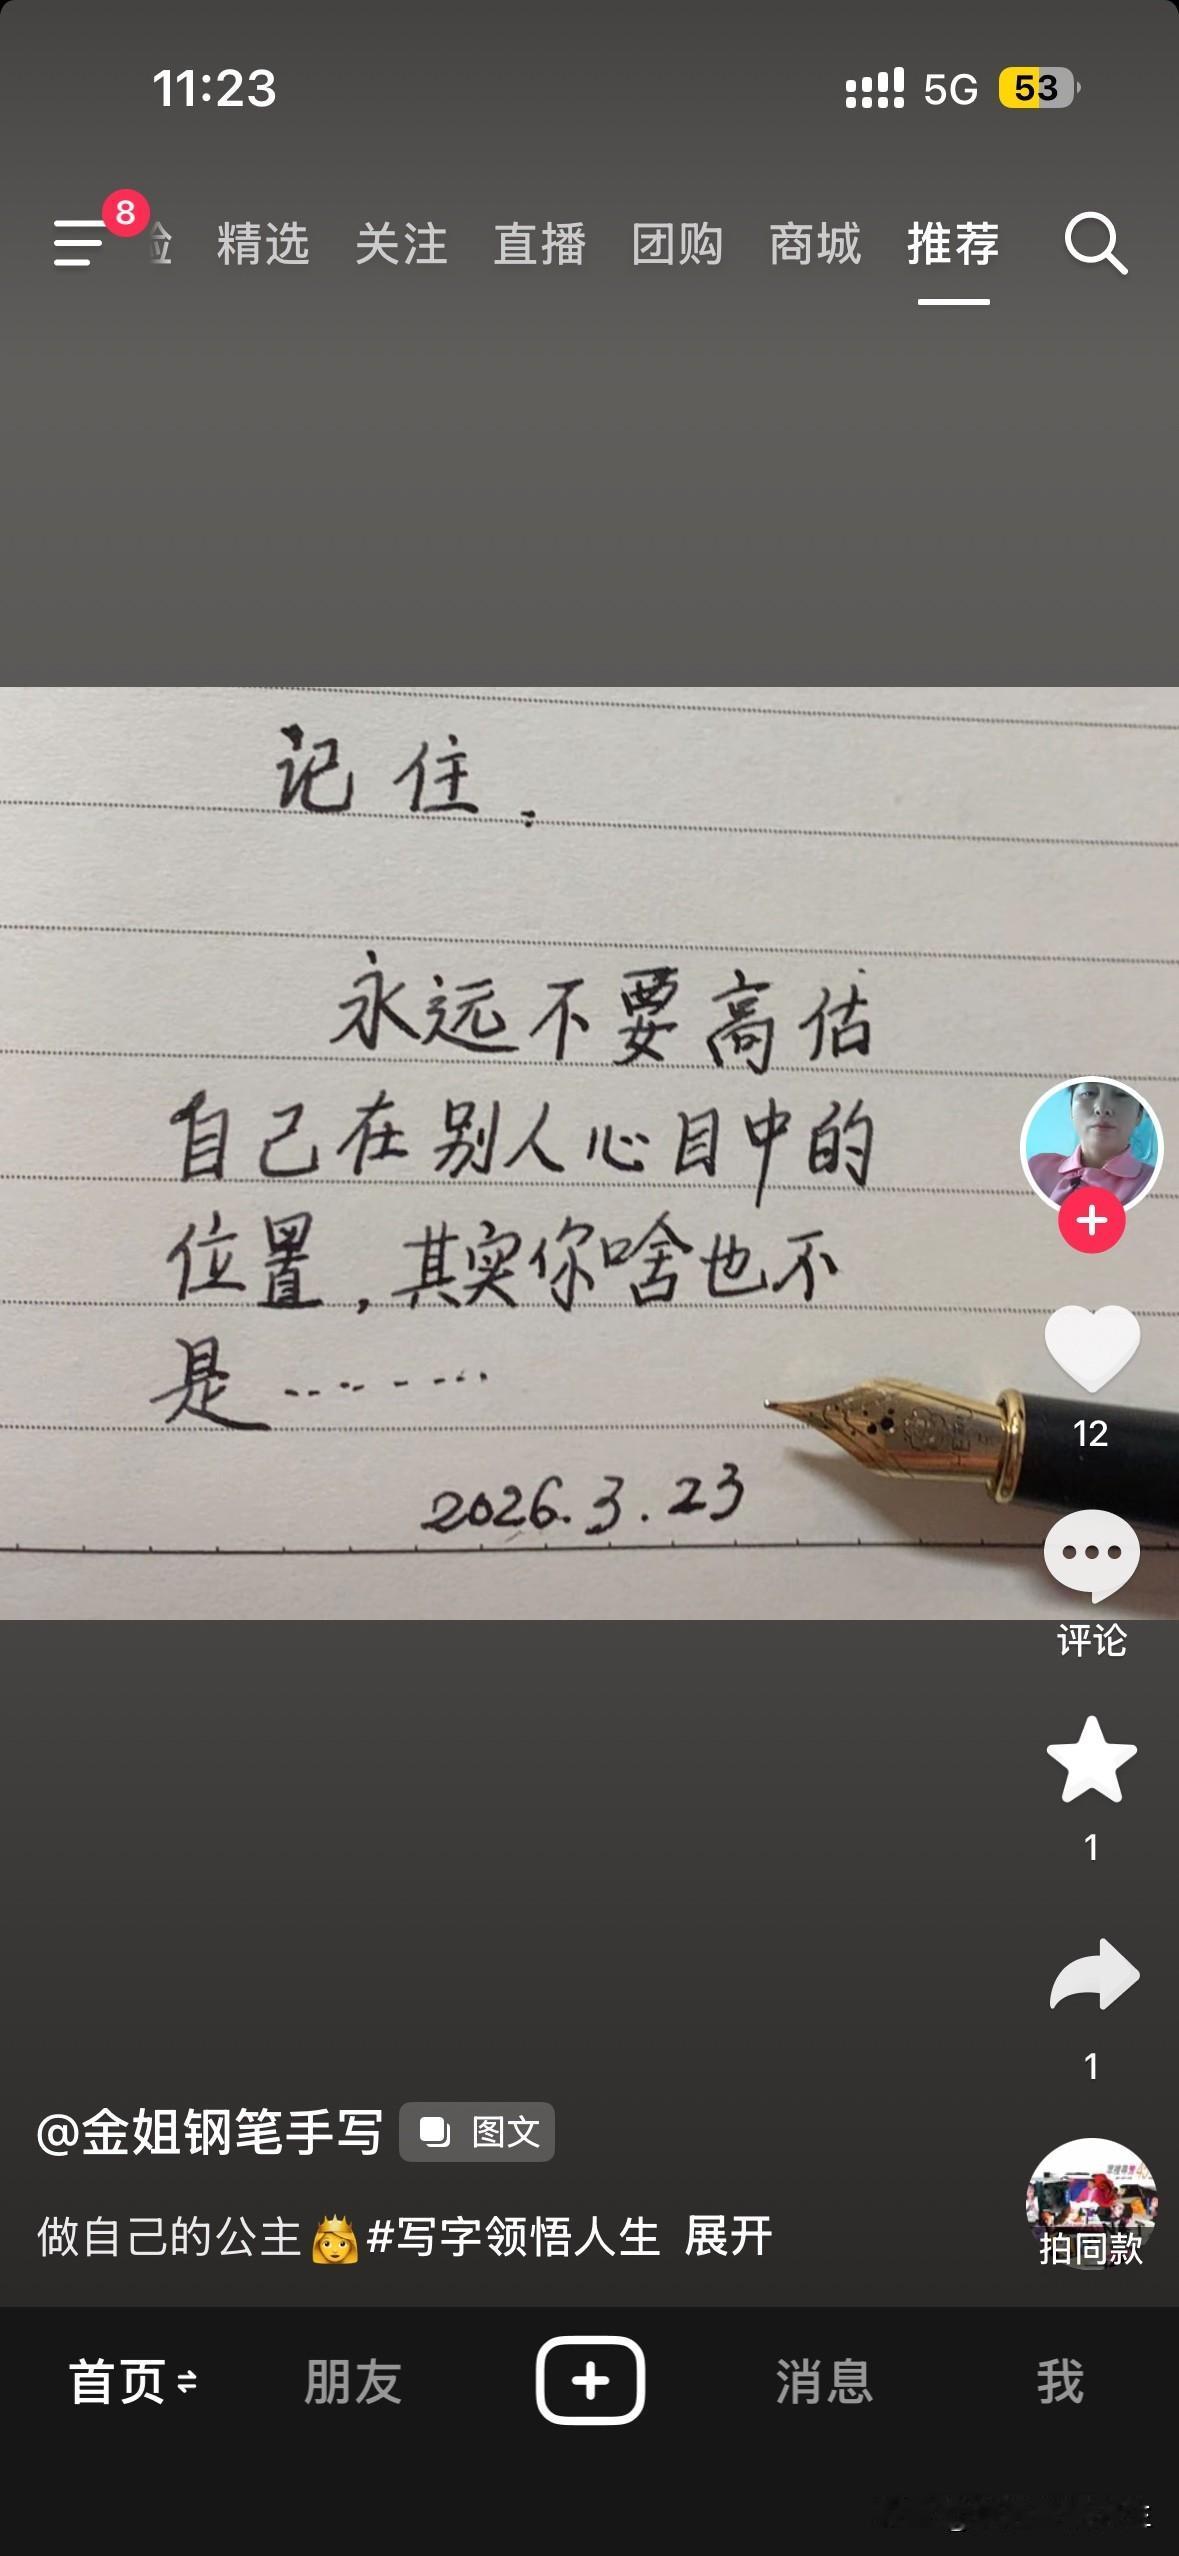 11:23
5G
53
8
精选 关注 直播 团购 商城 推荐
记住:
永远不要高估
自己在别人心目中的
位置,其实你啥也不
是……
2026.3.23
12
评论
1
1
@金姐钢笔手写
图文
做自己的公主👸#写字领悟人生 展开
拍同款
首页 朋友 消息 我